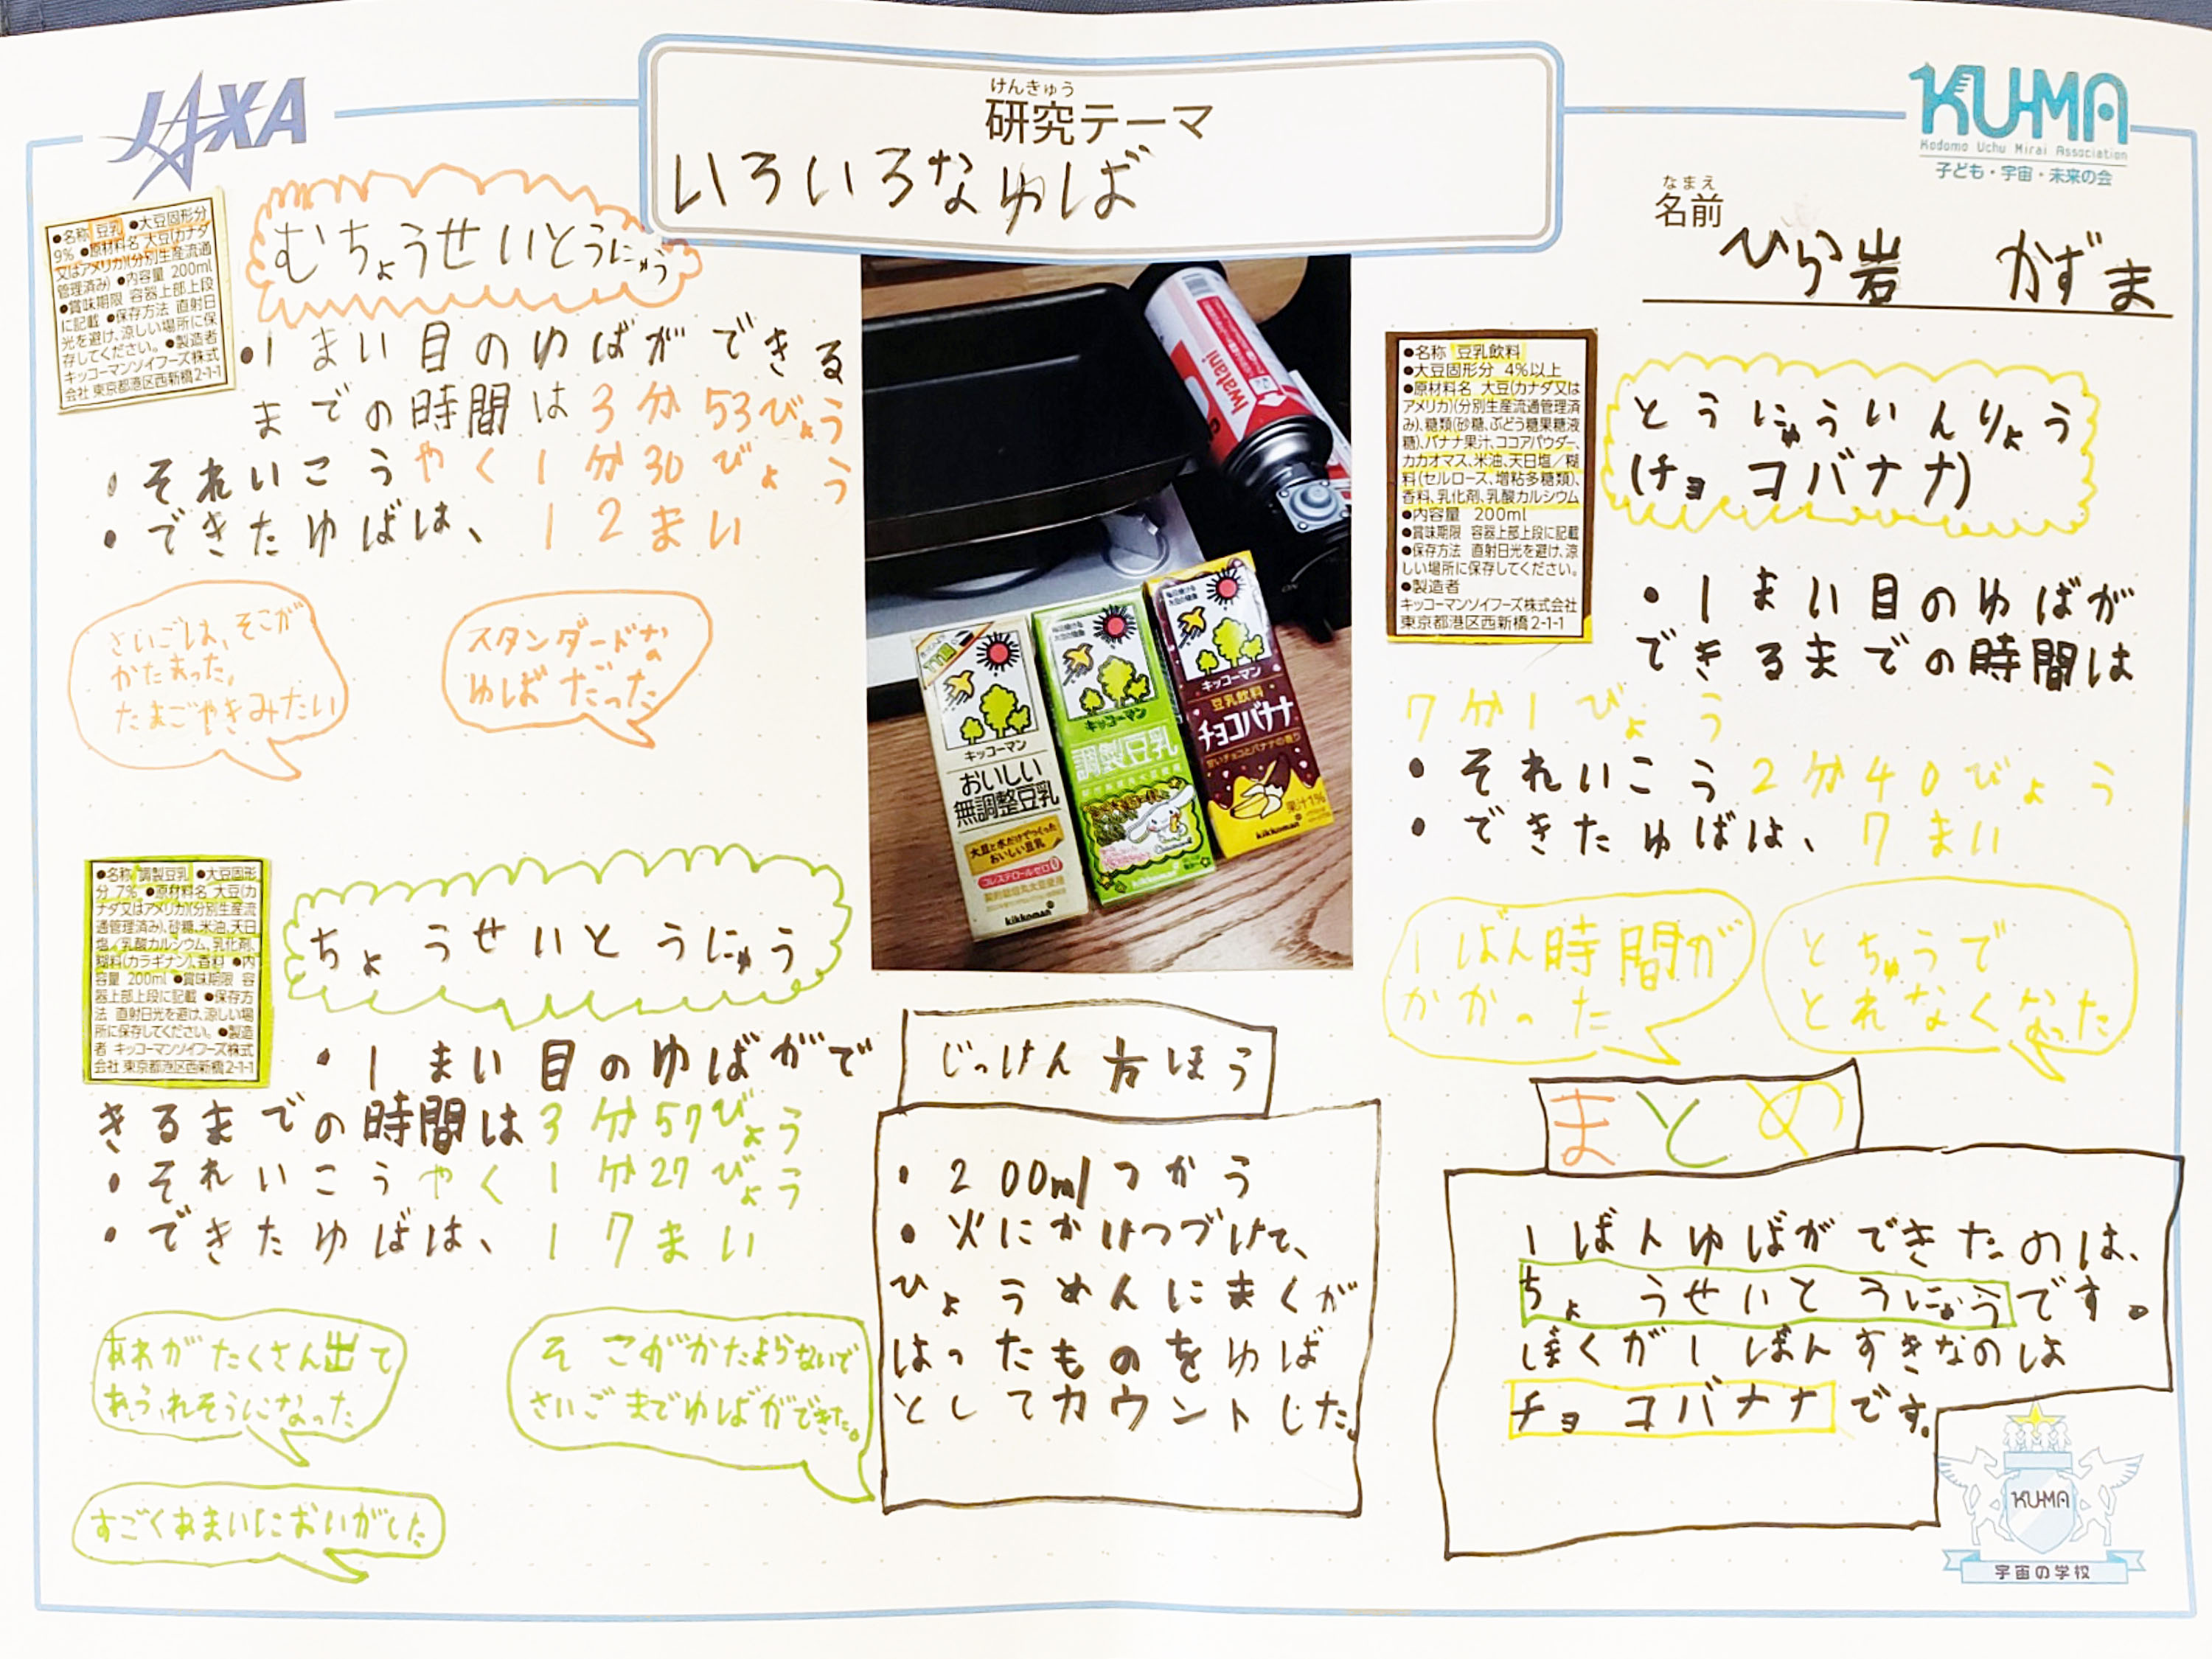 JAXA
けんきゅう
研究テーマ
いろいろなゆば
KU-MA
Kodomo Uchu Mirai Association
子ども・宇宙・未来の会
なまえ
名前
ひら岩 かずま
●名称 豆乳 ●大豆固形分
9% ●原材料名 大豆(カナダ
又はアメリカ)(分別生産流通
管理済み) ●内容量 200ml
●賞味期限 容器上部上段
に記載 ●保存方法 直射日
光を避け、涼しい場所に保
存してください。●製造者
キッコーマンソイフーズ株式
会社 東京都港区西新橋2-1-1
むちょうせいとうにゅう
・1まい目のゆばができる
までの時間は3分53びょう
・それいこうやく1分30びょう
・できたゆばは、12まい
さいごは、そこが
かたまった。
たまごやきみたい
スタンダードな
ゆばだった
●名称 調製豆乳 ●大豆固形
分 7% ●原材料名 大豆(カ
ナダ又はアメリカ)(分別生産流
通管理済み)、砂糖、米油、天日
塩/乳酸カルシウム、乳化剤、
糊料(カラギナン)、香料 ●内
容量 200ml ●賞味期限 容
器上部上段に記載 ●保存方
法 直射日光を避け、涼しい場
所に保存してください。●製造
者 キッコーマンソイフーズ株式
会社 東京都港区西新橋2-1-1
ちょうせいとうにゅう
・1まい目のゆばがで
きるまでの時間は3分57びょう
・それいこうやく1分27びょう
・できたゆばは、17まい
あわがたくさん出て
あふれそうになった
そこがかたまらないで
さいごまでゆばができた。
すごくあまいにおいがした
Iwatani
キッコーマン
おいしい
無調整豆乳
大豆と水だけでつくった
おいしい豆乳
コレステロールゼロ
kikkoman
キッコーマン
調製豆乳
kikkoman
キッコーマン
豆乳飲料
チョコバナナ
甘いチョコとバナナの香り
果汁1%
kikkoman
じっけん方ほう
・200mlつかう
・火にかけつづけて、
ひょうめんにまくが
はったものをゆば
としてカウントした。
●名称 豆乳飲料
●大豆固形分 4%以上
●原材料名 大豆(カナダ又は
アメリカ)(分別生産流通管理済
み)、糖類(砂糖、ぶどう糖果糖液
糖)、バナナ果汁、ココアパウダー、
カカオマス、米油、天日塩/糊
料(セルロース、増粘多糖類)、
香料、乳化剤、乳酸カルシウム
●内容量 200ml
●賞味期限 容器上部上段に記載
●保存方法 直射日光を避け、涼
しい場所に保存してください。
●製造者
キッコーマンソイフーズ株式会社
東京都港区西新橋2-1-1
とうにゅういんりょう
(チョコバナナ)
・1まい目のゆばが
できるまでの時間は
7分1びょう
・それいこう2分40びょう
・できたゆばは、7まい
1ばん時間が
かかった
とちゅうで
とれなくなった
まとめ
1ばんゆばができたのは、
ちょうせいとうにゅうです。
ぼくが1ばんすきなのは
チョコバナナです。
KU-MA
宇宙の学校